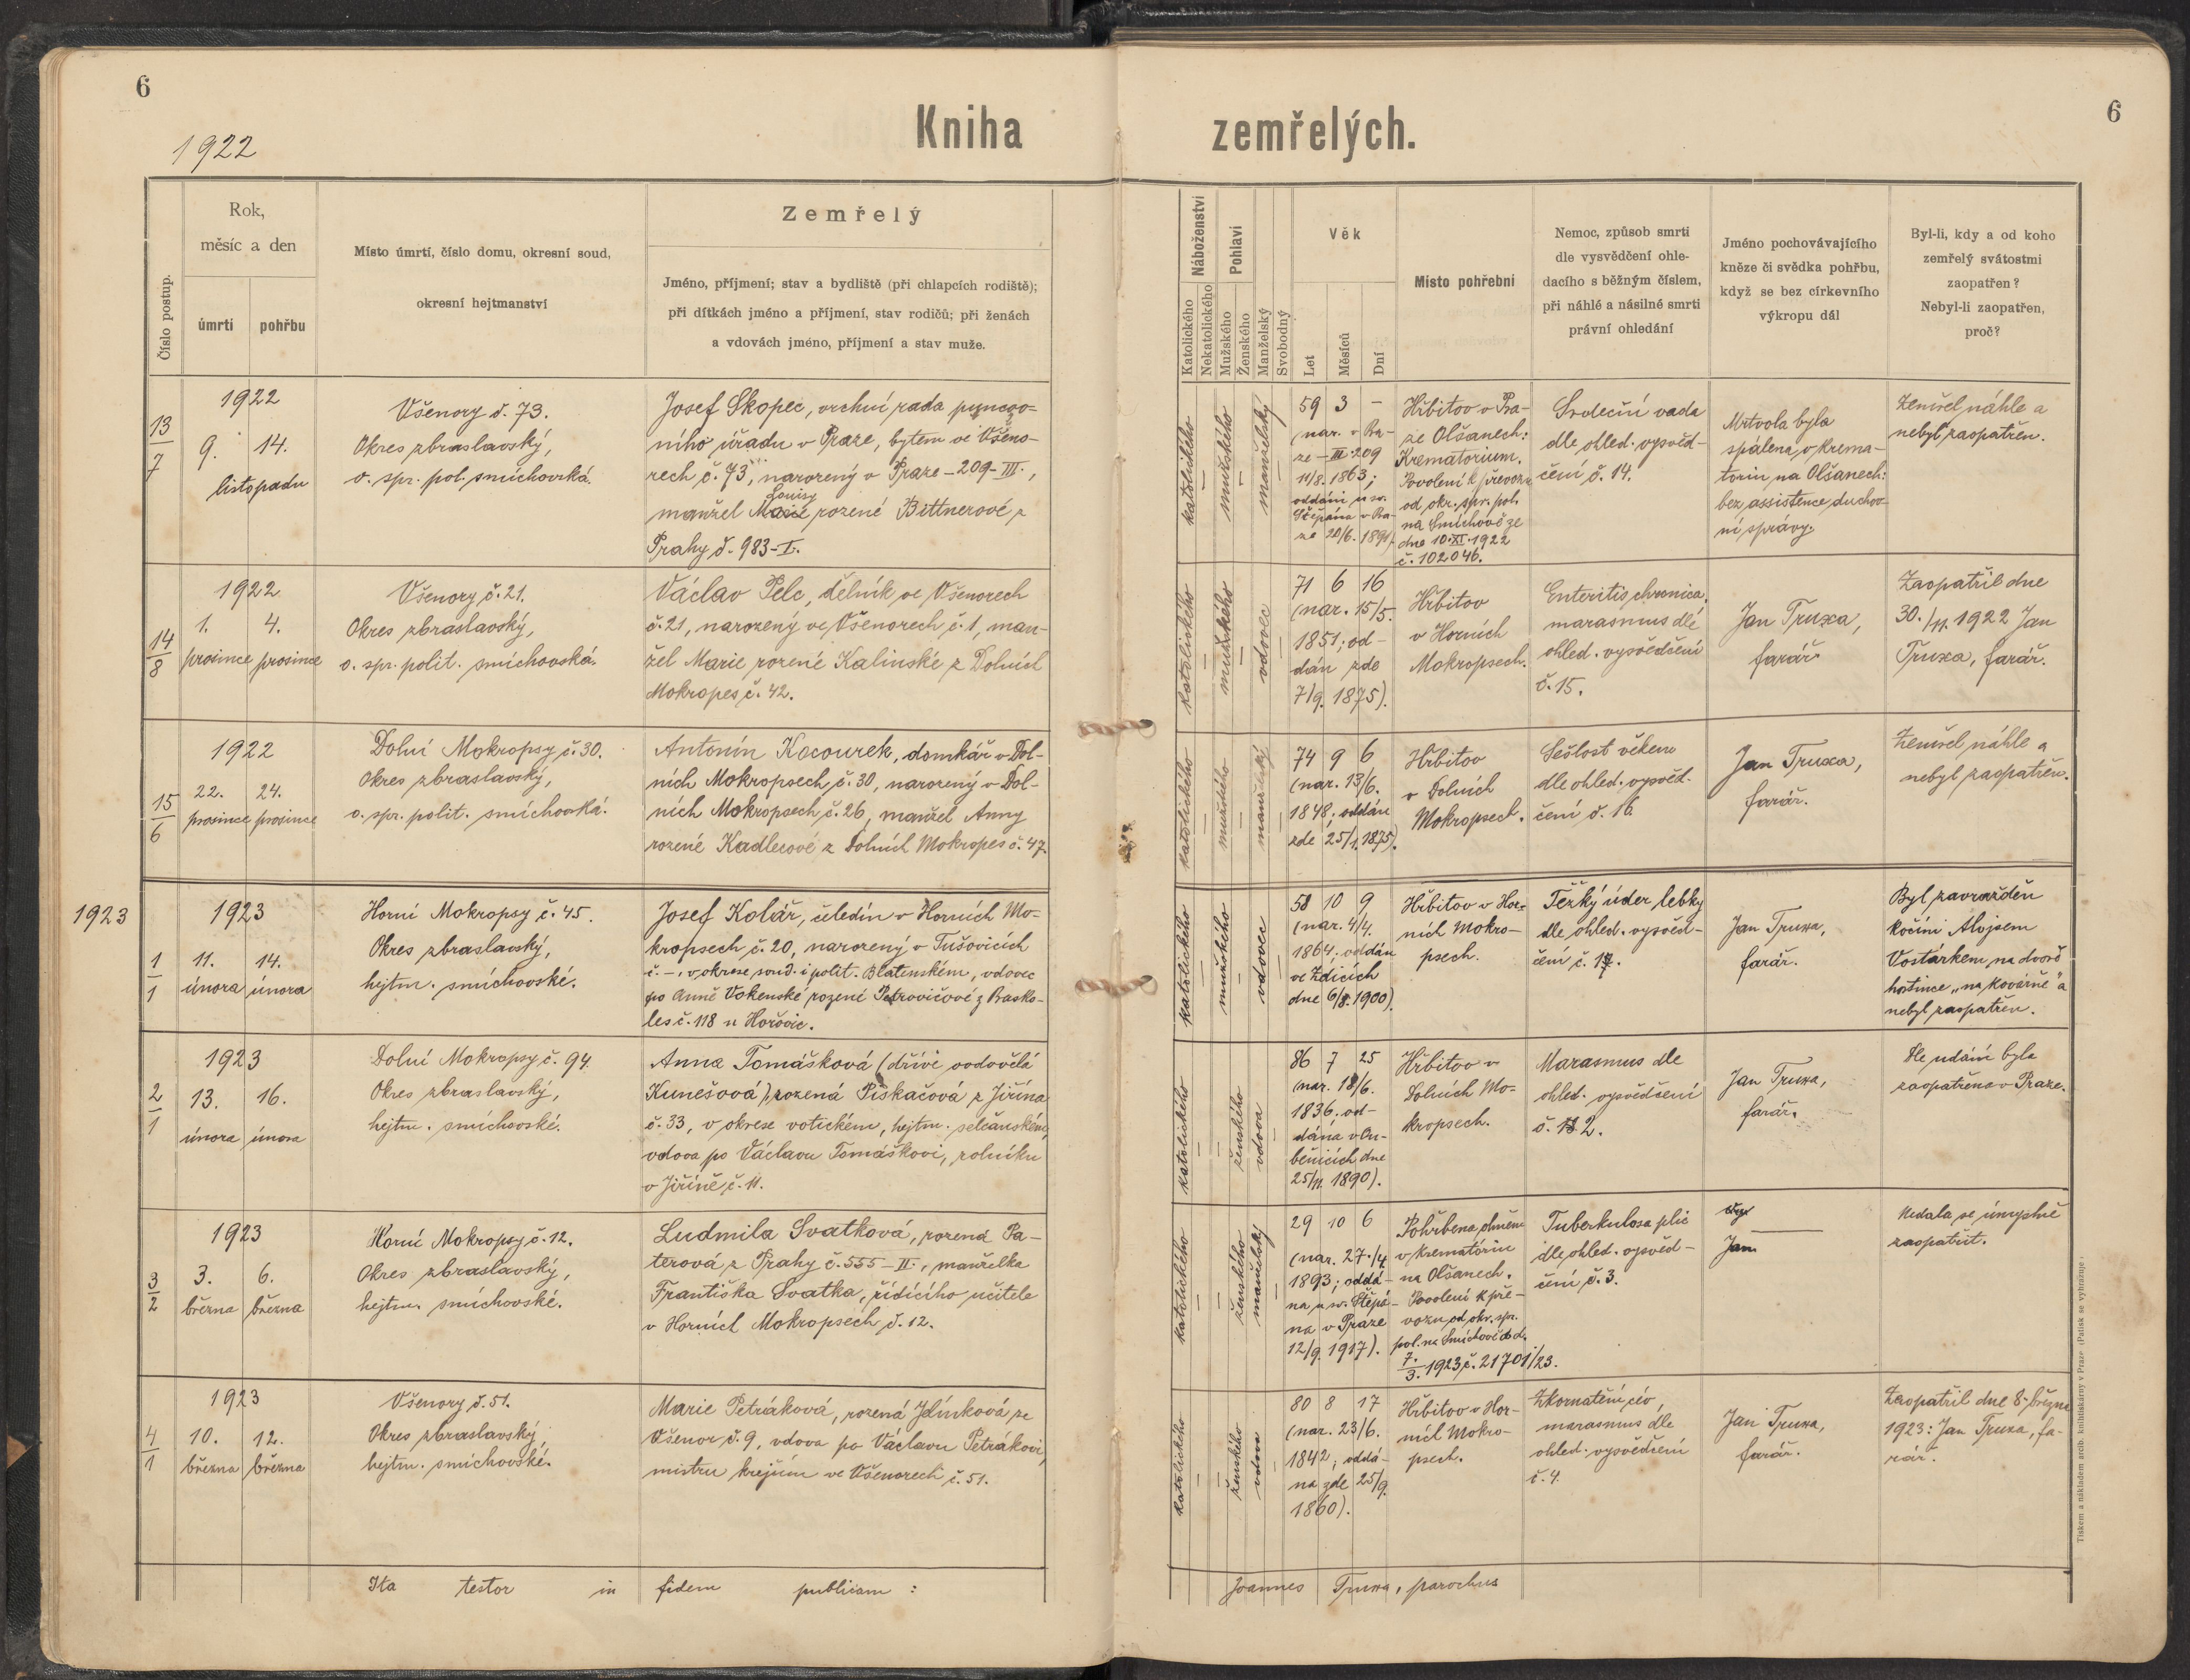 6
1922
Kniha
zemřelých.
6
Číslo postup.
Rok,
měsíc a den
úmrtí
pohřbu
Místo úmrtí, číslo domu, okresní soud,
okresní hejtmanství
Zemřelý
Jméno, příjmení; stav a bydliště (při chlapcích rodiště);
při dítkách jméno a příjmení, stav rodičů; při ženách
a vdovách jméno, příjmení a stav muže.
Náboženství
Katolického
Nekatolického
Pohlaví
Mužského
Ženského
Manželský
Svobodný
Věk
Let
Měsíců
Dní
Místo pohřební
Nemoc, způsob smrti
dle vysvědčení ohle-
dacího s běžným číslem,
při náhlé a násilné smrti
právní ohledání
Jméno pochovávajícího
kněze či svědka pohřbu,
když se bez církevního
výkropu dál
Byl-li, kdy a od koho
zemřelý svátostmi
zaopatřen?
Nebyl-li zaopatřen,
proč?
13
7
1922
9. 14.
listopadu
Všenory č. 73.
Okres zbraslavský,
o. spr. pol. smíchovská.
Josef Skopec, vrchní rada
ního úřadu v Praze, bytem ve Všeno-
rech č. 73, narozený v Praze - 209 - III.,
Louisy
manžel Marie rozené Bittnerové z
Prahy č. 983 - I.
katolického
mužského
manželský
59 3 -
(nar. v Pra-
ze - III - 209
11/8. 1863;
oddáni u sv.
Štěpána v Pra-
ze 20/6. 1891).
Hřbitov v Pra-
ze Olšanech:
Krematorium.
Povolení k převozu
od okr. spr. pol.
na Smíchově ze
dne 10. XI. 1922
č. 102046.
Srdeční vada
dle ohled. vysvěd-
čení č. 14.
Mrtvola byla
spálena v krema-
toriu na Olšanech:
bez assistence duchov-
ní správy.
Zemřel náhle a
nebyl zaopatřen.
14
8
1922
1. 4.
prosince prosince
Všenory č. 21.
Okres zbraslavský,
o. spr. polit. smíchovská.
Václav Pelc, dělník ve Všenorech
č. 21, narozený ve Všenorech č. 1, man-
žel Marie rozené Kalinské z Dolních
Mokropes č. 42.
katolického
mužského
vdovec
71 6 16
(nar. 15/5.
1851; od-
dán zde
7/9. 1875).
Hřbitov
v Horních
Mokropsech.
Enteritis chronica,
marasmus dle
ohled. vysvědčení
č. 15.
Jan Truxa,
farář.
Zaopatřil dne
30./11. 1922 Jan
Truxa, farář.
15
6
1922
22. 24.
prosince prosince
Dolní Mokropsy č. 30.
Okres zbraslavský,
o. spr. polit. smíchovská.
Antonín Kocourek, domkář v Dol-
ních Mokropsech č. 30, narozený v Dol-
ních Mokropsech č. 26, manžel Anny
rozené Kadlecové z Dolních Mokropes č. 47.
katolického
mužského
manželský
74 9 6
(nar. 13/6.
1848; oddán
zde 25/1. 1875).
Hřbitov
v Dolních
Mokropsech.
Sešlost věkem
dle ohled. vysvěd-
čení č. 16.
Jan Truxa,
farář.
Zemřel náhle a
nebyl zaopatřen.
1923
1
1
1923
11. 14.
února února
Horní Mokropsy č. 45.
Okres zbraslavský,
hejtm. smíchovské.
Josef Kolář, čeledín v Horních Mo-
kropsech č. 20, narozený v Tušovicích
č. -, v okrese soud. i polit. Blatenském, vdovec
po Anně Vokenské rozené Petrovičové z Prasko-
les č. 118 u Hořovic.
katolického
mužského
vdovec
58 10 9
(nar. 4/4.
1864; oddán
ve Zdicích
dne 6/8. 1900).
Hřbitov v Hor-
ních Mokro-
psech.
Těžký úder lebky
dle ohled. vysvěd-
čení č. 17.
Jan Truxa,
farář.
Byl zavražděn
kočím Aloisem
Vostárkem, na dvoře
hostince „na Kovárně" a
nebyl zaopatřen.
2
1
1923
13. 16.
února února
Dolní Mokropsy č. 94.
Okres zbraslavský,
hejtm. smíchovské.
Anna Tomášková (dříve ovdovělá
Kunešová), rozená Piskačová z Jiřína
č. 33, v okrese votickém, hejtm. selčanském,
vdova po Václavu Tomáškovi, rolníku
v Jiříně č. 11.
katolického
ženského
vdova
86 7 25
(nar. 18/6.
1836. od-
dána v Ou-
běnicích dne
25/11. 1890).
Hřbitov v
Dolních Mo-
kropsech.
Marasmus dle
ohled. vysvědčení
č. 2.
Jan Truxa,
farář.
Dle udání byla
zaopatřena v Praze.
3
2
1923
3. 6.
března března
Horní Mokropsy č. 12.
Okres zbraslavský,
hejtm. smíchovské.
Ludmila Svatková, rozená Pa-
terová z Prahy č. 555 - II., manželka
Františka Svatka, řídícího učitele
v Horních Mokropsech č. 12.
katolického
ženského
manželský
29 10 6
(nar. 27./4.
1893; oddá-
na u sv. Štěpá-
na v Praze
12/9. 1917).
Pohřbena ohněm
v krematóriu
na Olšanech.
Povolení k pře-
vozu od okr. spr.
pol. na Smíchově dd.
7./3. 1923 č. 21701/23.
Tuberkulosa plic
dle ohled. vysvěd-
čení č. 3.
Jan
Nedala se úmyslně
zaopatřit.
4
1
1923
10. 12.
března března
Všenory č. 51.
Okres zbraslavský,
hejtm. smíchovské.
Marie Petráková, rozená Jelínková ze
Všenor č. 9, vdova po Václavu Petrákovi,
mistru krejčím ve Všenorech č. 51.
katolického
ženského
vdova
80 8 17
(nar. 23/6.
1842; oddá-
na zde 25/9.
1860).
Hřbitov v Hor-
ních Mokro-
psech.
Zkornatění cév,
marasmus dle
ohled. vysvědčení
č. 4.
Jan Truxa,
farář.
Zaopatřil dne 8. března
1923: Jan Truxa, fa-
rář.
Ita testor in fidem publicam :
Joannes Truxa, parochus
Tiskem a nákladem arcib. knihtiskárny v Praze (Patisk se vyhražuje.)